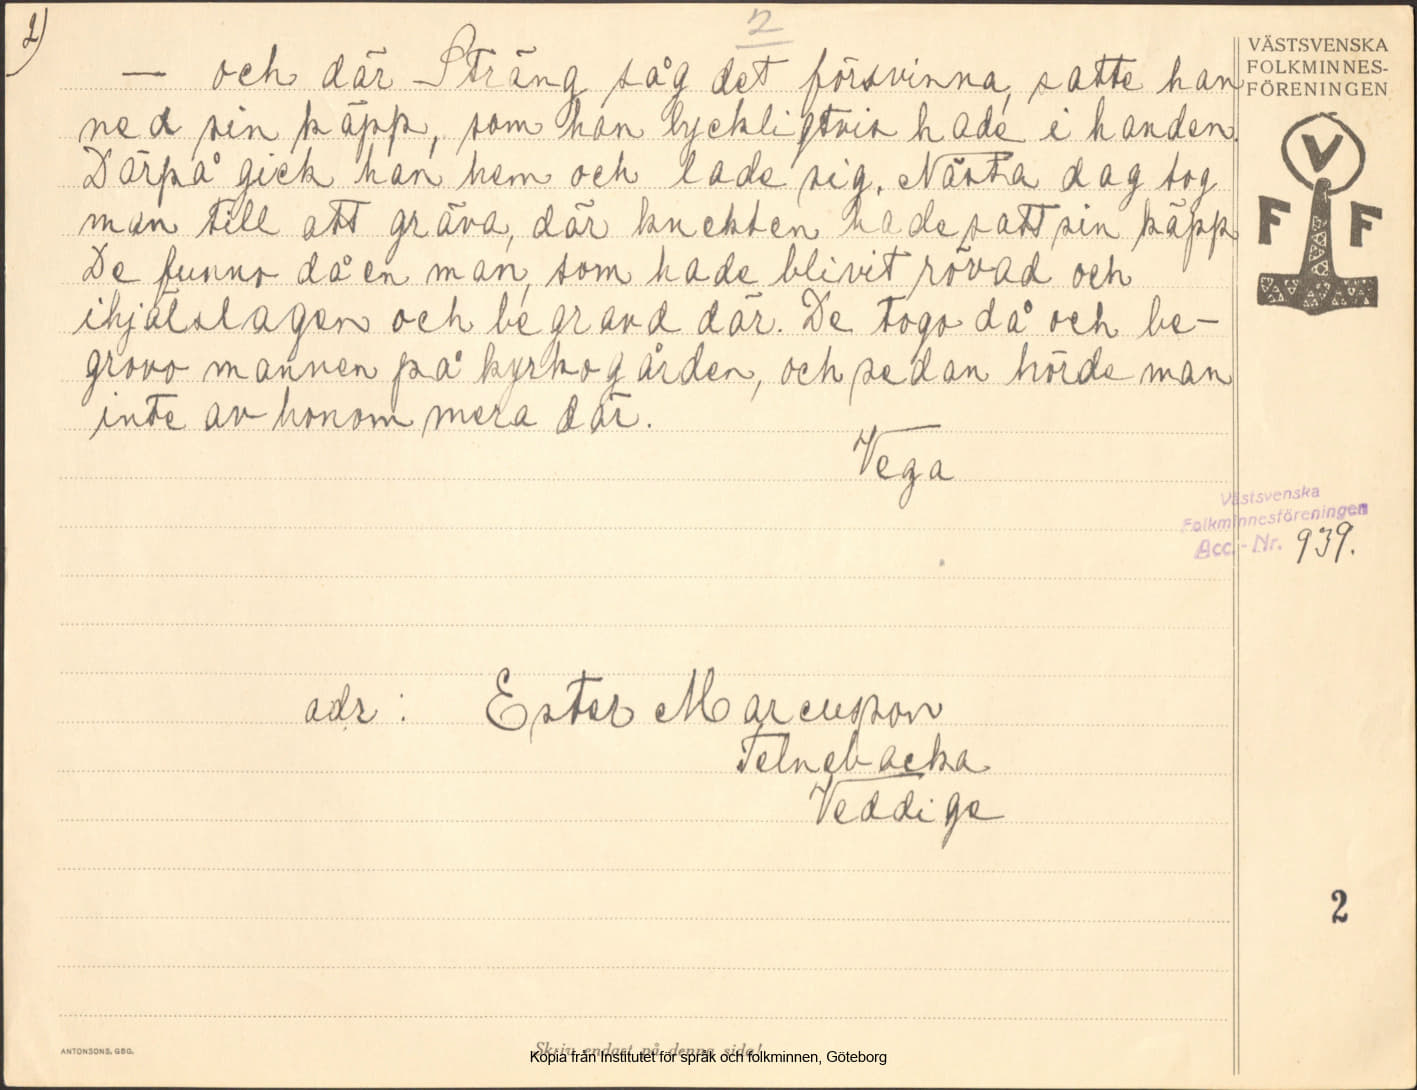 2)
2
— och där Sträng såg det försvinna, satte han
ned sin käpp, som han lyckligtvis hade i handen.
Därpå gick han hem och lade sig. Nästa dag tog
man till att gräva, där knekten hade satt sin käpp
De funno då en man, som hade blivit rövad och
ihjälslagen och begravd där. De togo då och be-
grovo mannen på kyrkogården, och sedan hörde man
inte av honom mera där.
Vega
adr: Ester Marcusson
Telnebacka
Veddige
VÄSTSVENSKA
FOLKMINNES-
FÖRENINGEN
V
F F
Västsvenska
Folkminnesföreningen
Acc.-Nr. 939.
2
ANTONSONS, GBG.
Skriv endast på denna sida!
Kopia från Institutet för språk och folkminnen, Göteborg